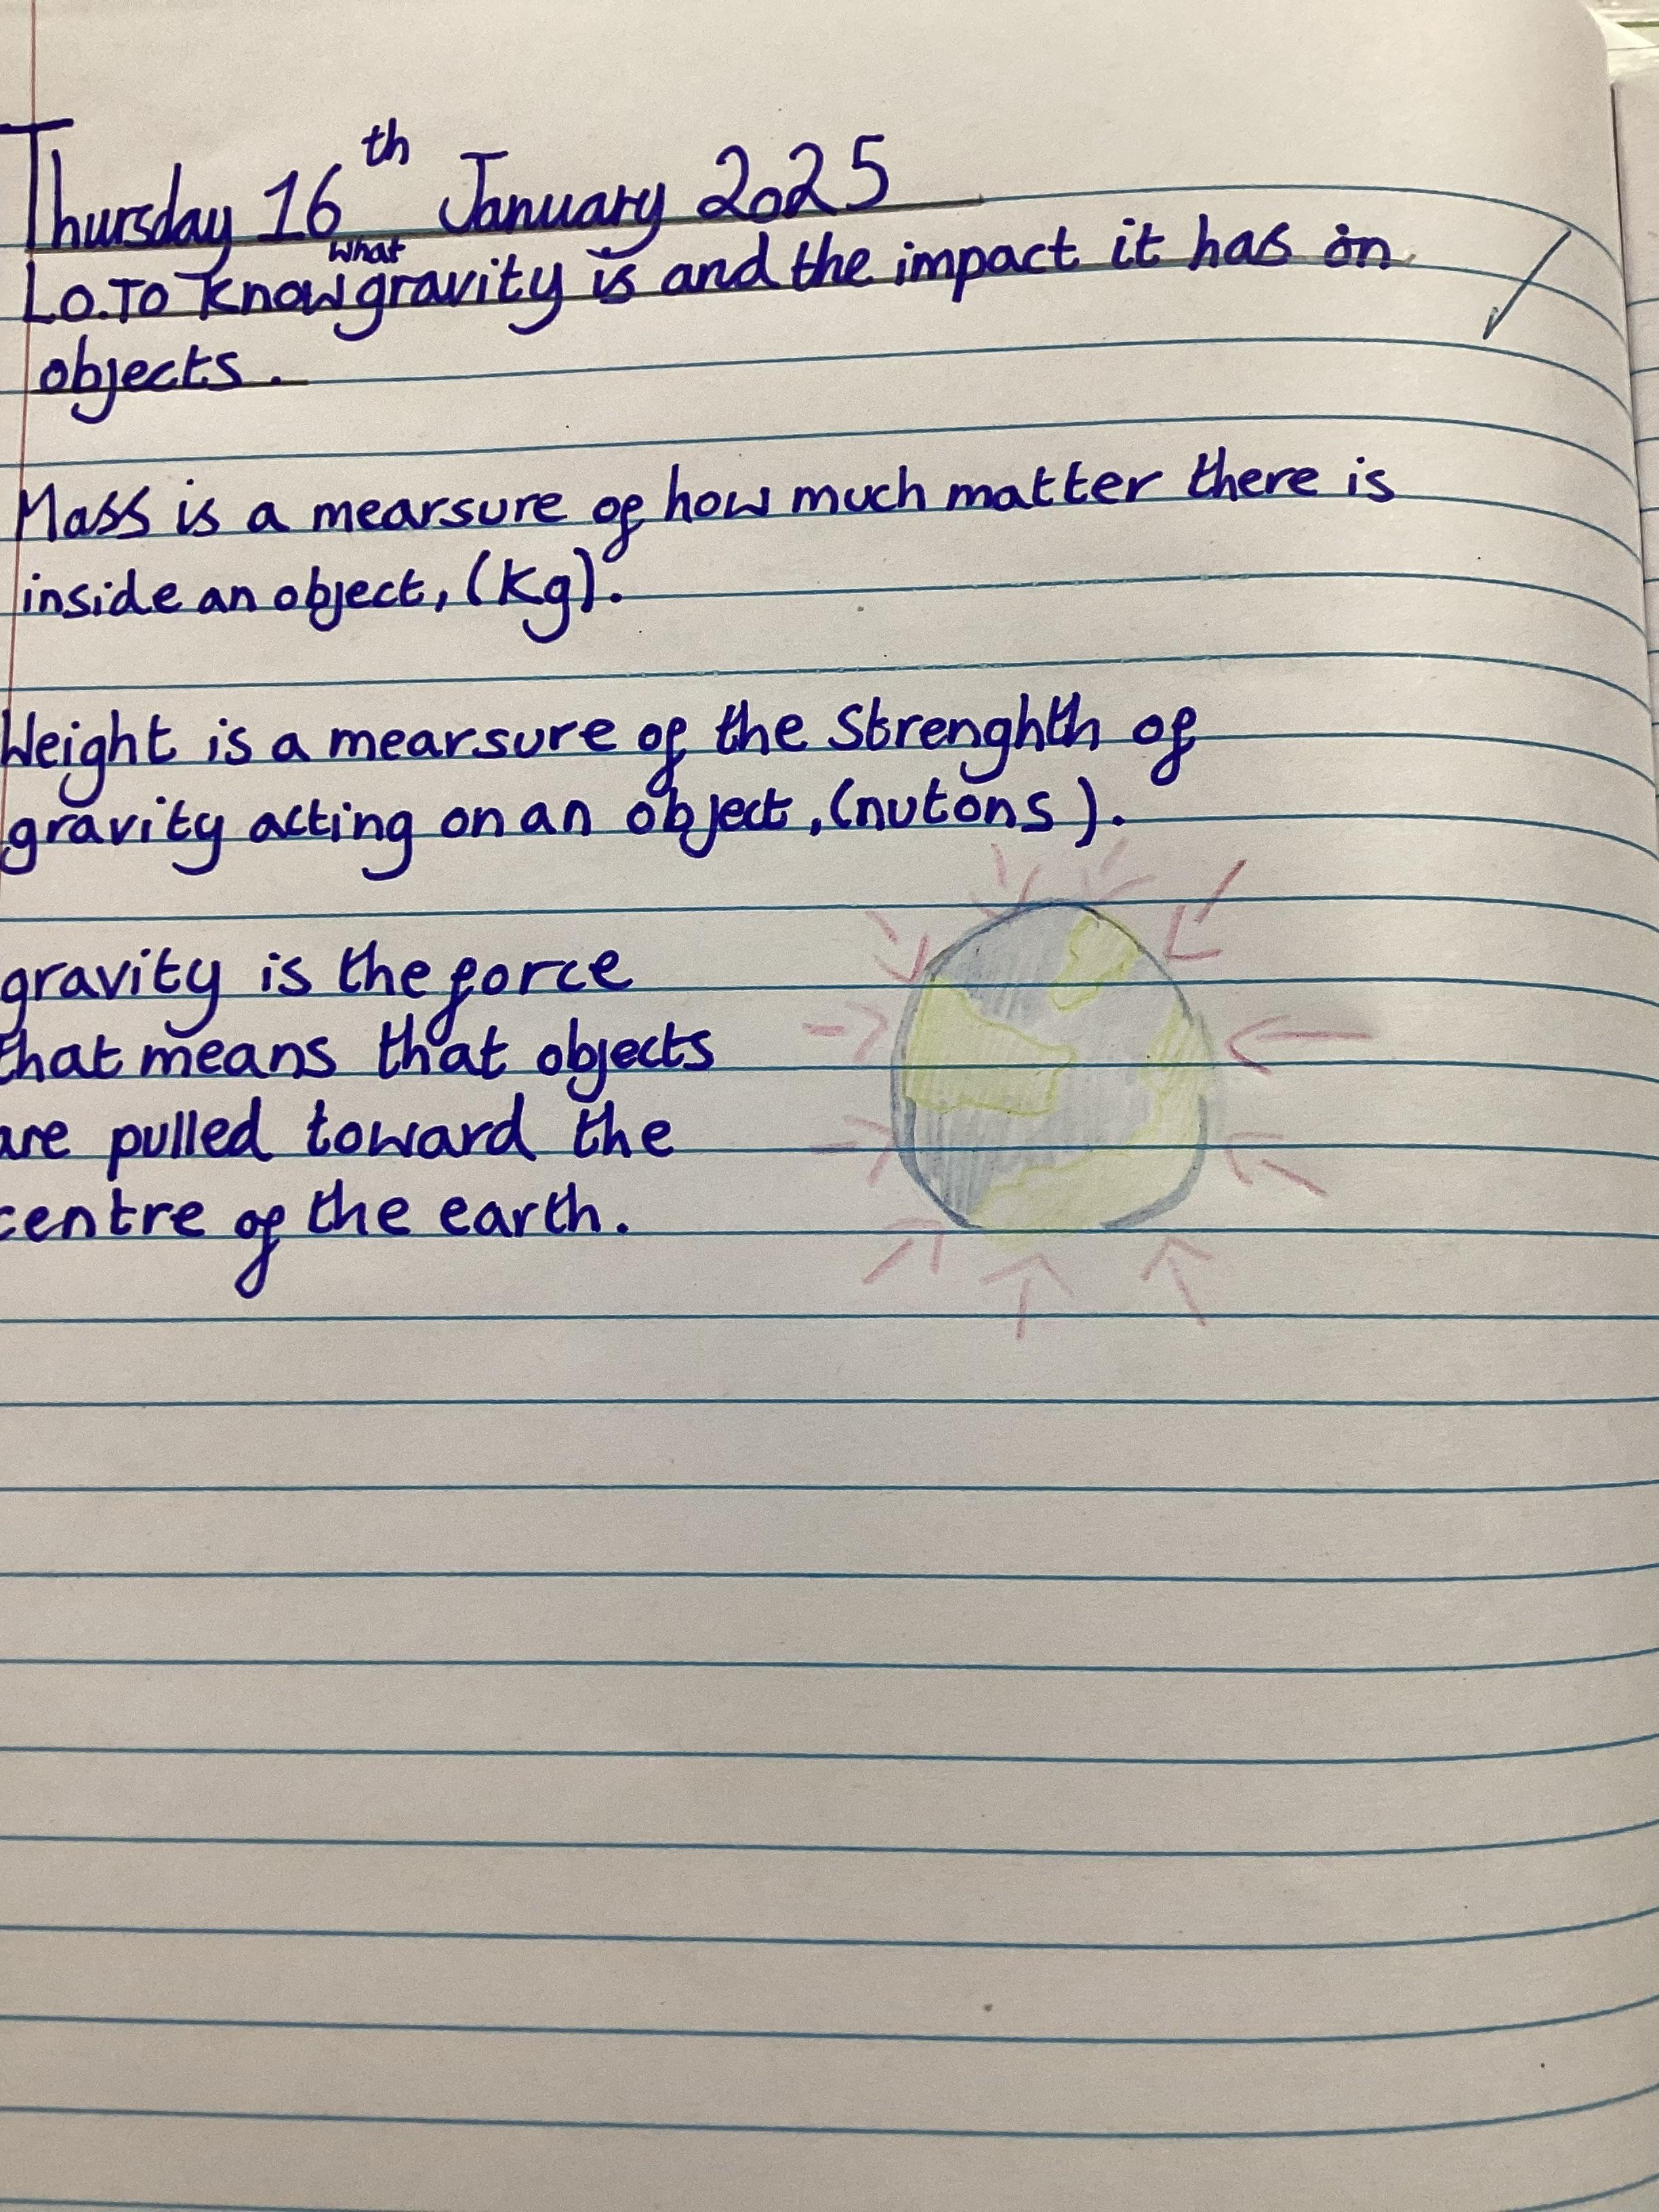 Thursday 16th January 2025
Lo.To Know what gravity is and the impact it has on
objects.
Mass is a mearsure of how much matter there is
inside an object, (Kg).
Weight is a mearsure of the Strenghth of
gravity acting on an object, (nutons).
gravity is the force
that means that objects
are pulled toward the
centre of the earth.